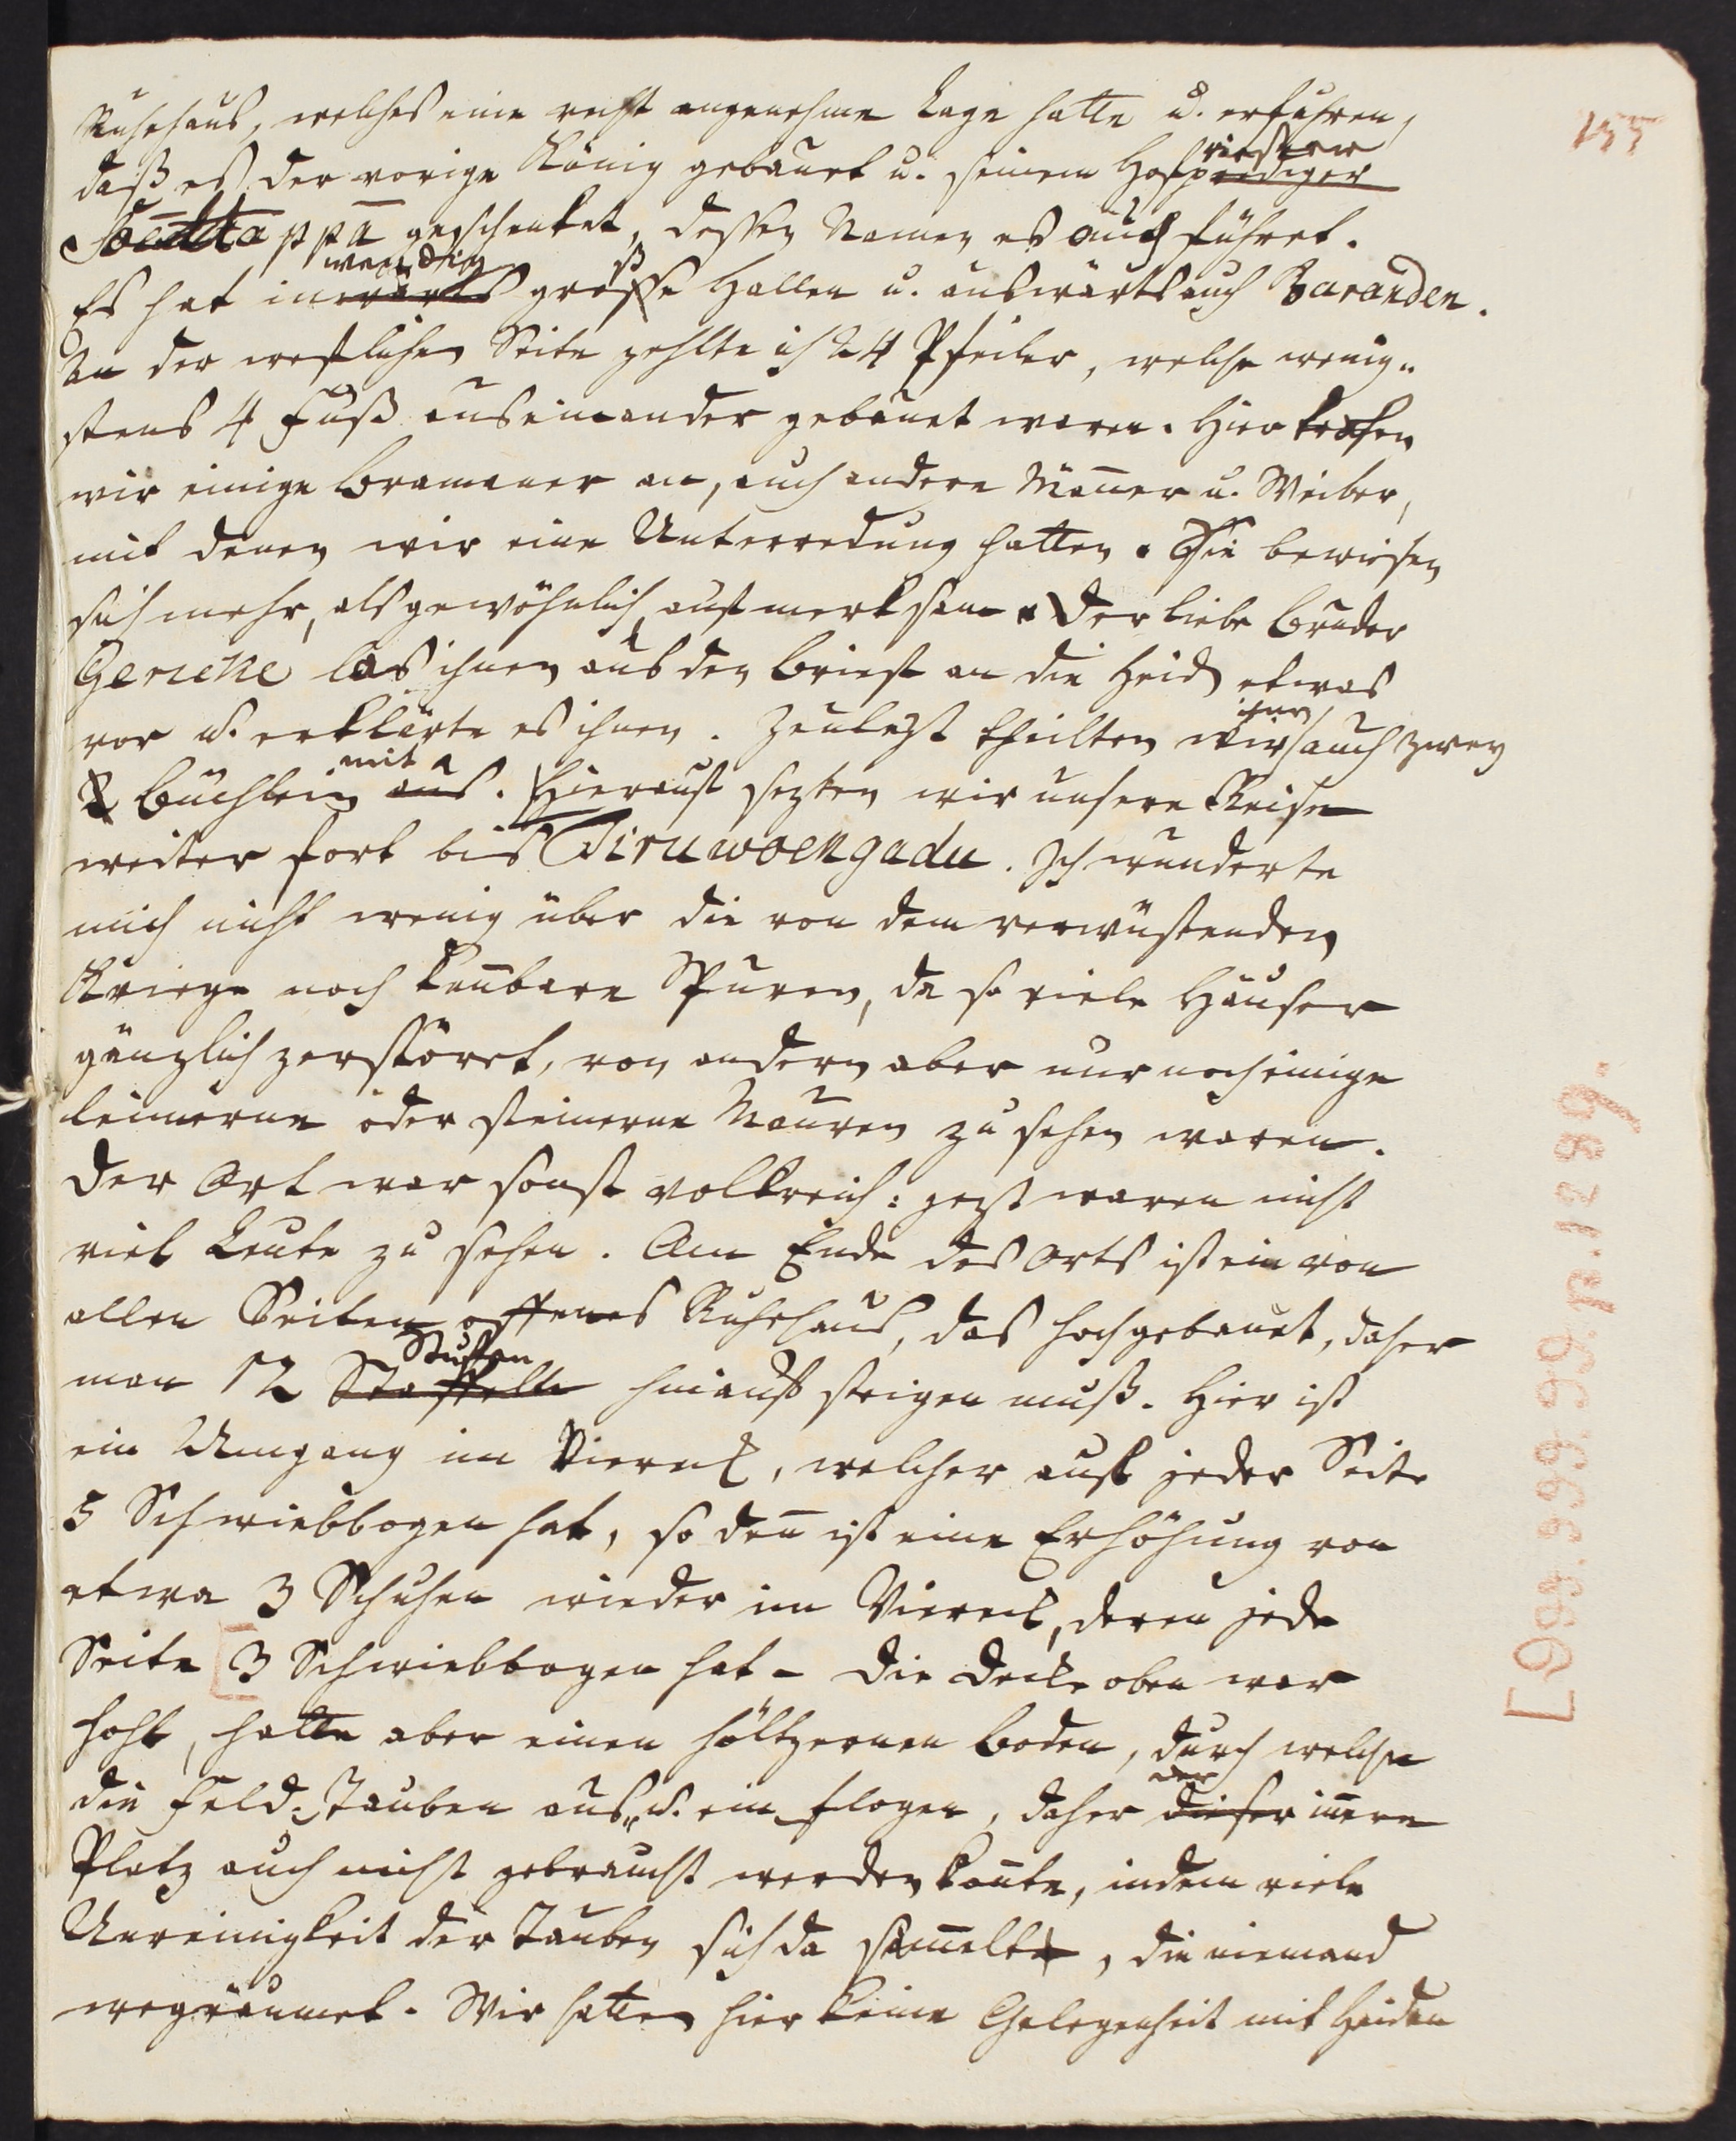 155
Ruhehaus, welches eine recht angenehme Lage hatte u. erfuhren,
daß es der vorige König gebauet u. seinem Hofprediger
riester
ppa geschenket, dessen Namen es auch führet.
wendig
Es hat inwärts große Hallen u. auswärts auch Baranden.
An der westlichen Seite zehlte ich 24 Pfeiler, welche wenig-
stens 4 Fuß auseinander gebauet waren. Hier trafen
wir einige Bramaner an, auch andere Mañer u. Weiber,
mit denen wir eine Unterredung hatten. Sie bewiesen
sich mehr, als gewöhnlich, aufmerksam. Der liebe Bruder
Gericke las ihnen aus den Brief an die Heid etwas
vor u. erklärte es ihnen. Zulezt theilten wir ihnen auch zwey
mit
2 Büchlein aus. Hierauf sezten wir unsere Reise
weiter fort bis Tiruwoengadu. Ich wunderte
mich nicht wenig über die von dem verwüstenden
Kriege noch keñbare Spuren, da so viele Häuser
gänzlich zerstöret, von andern aber nur noch einige
leimerne oder steinerne Mauren zu sehen waren.
Der Ort war sonst volkreich: jezt waren nicht
viel Leute zu sehen. Am Ende des Orts ist ein von
allen Seiten offenes Ruhehaus, das hoch gebauet, daher
Stuffen
man 12 Staffelln hinauf steigen muß. Hier ist
ein Umgang im Viereck, welcher auf jeder Seite
5 Schwiebbogen hat, so deñ ist eine Erhöhung von
etwa 3 Schuhen wieder im Viereck, deren jede
Seite [3 Schwiebbogen hat. Die Decke oben war
hohl, hatte aber einen höltzernen Boden, durch welche
der
die Feld-Tauben aus- u. ein flogen, daher dieser iñere
Platz auch nicht gebraucht werden koñte, indem viele
Unreinigkeit der Tauben sich da sam̃elte, die niemand
wegräumet. Wir hatten hier keine Gelegenheit mit Heiden
[999.999.99.p.1289.